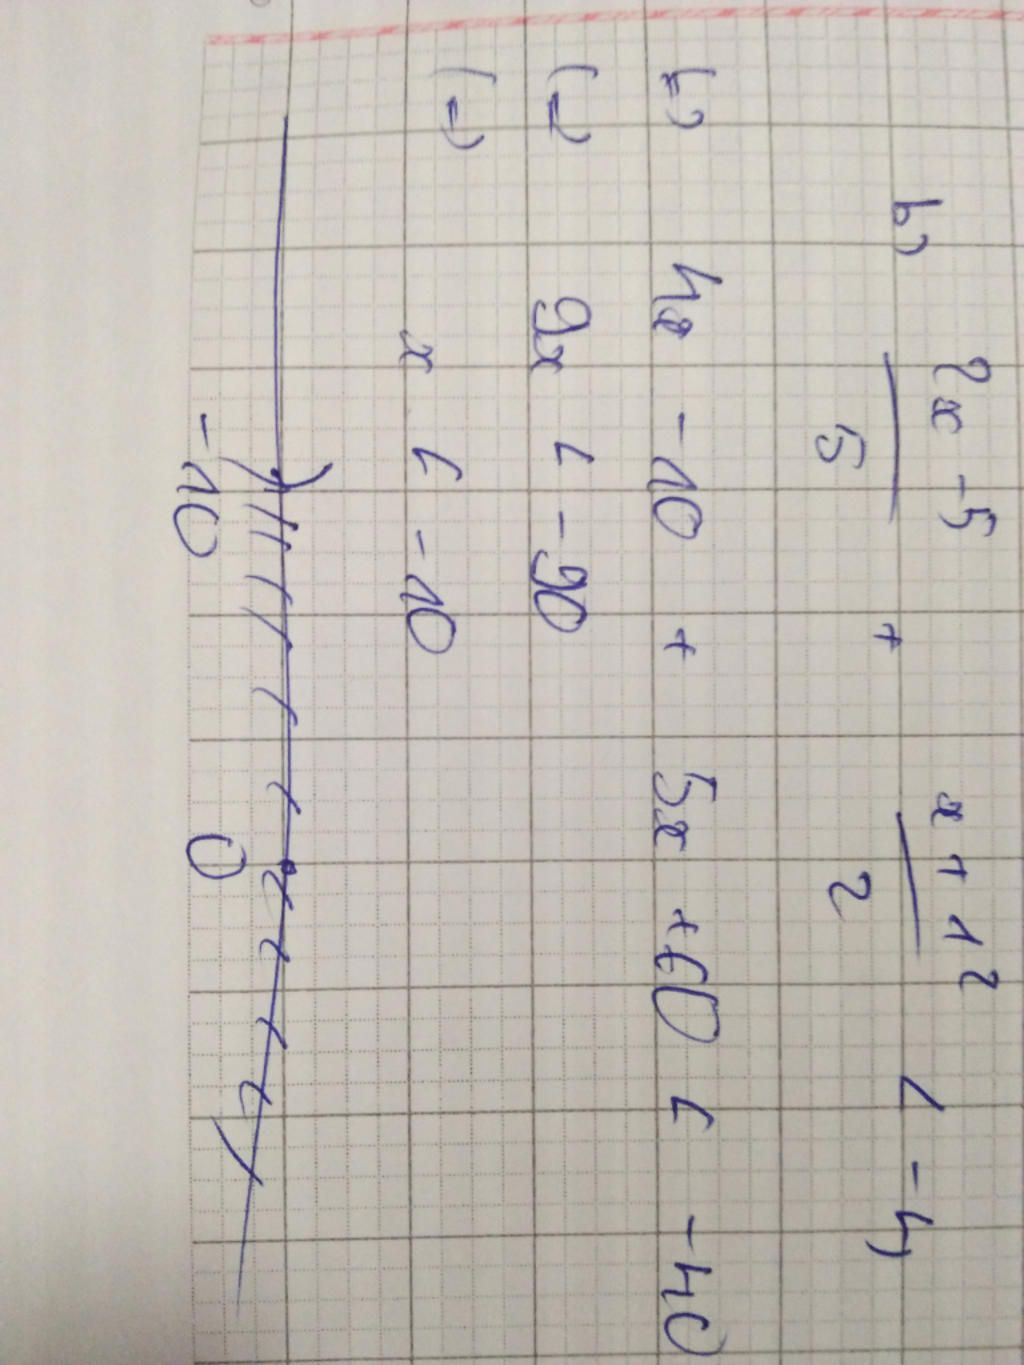 b) 2x -5 / 5 + x + 12 / 2 < -4
(=) 4x -10 + 5x +60 < -40
(=) 9x < -90
(=) x < -10
-10 0